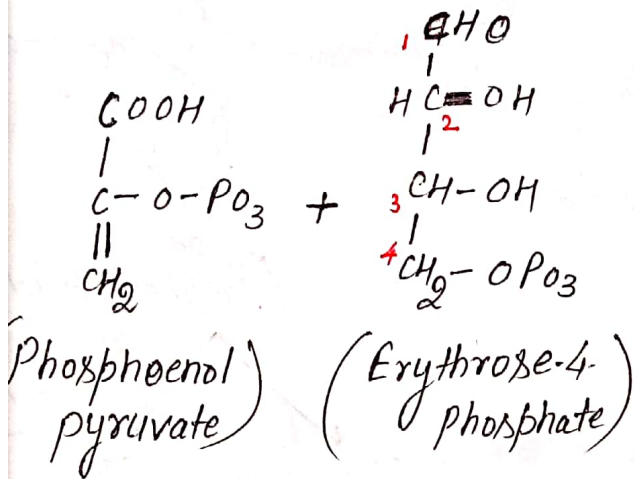 COOH
|
C-O-PO3
||
CH2
(Phosphoenol
pyruvate)
+
1 CHO
|
H C=OH
2
|
3 CH-OH
|
4 CH2-OPO3
(Erythrose-4-
phosphate)